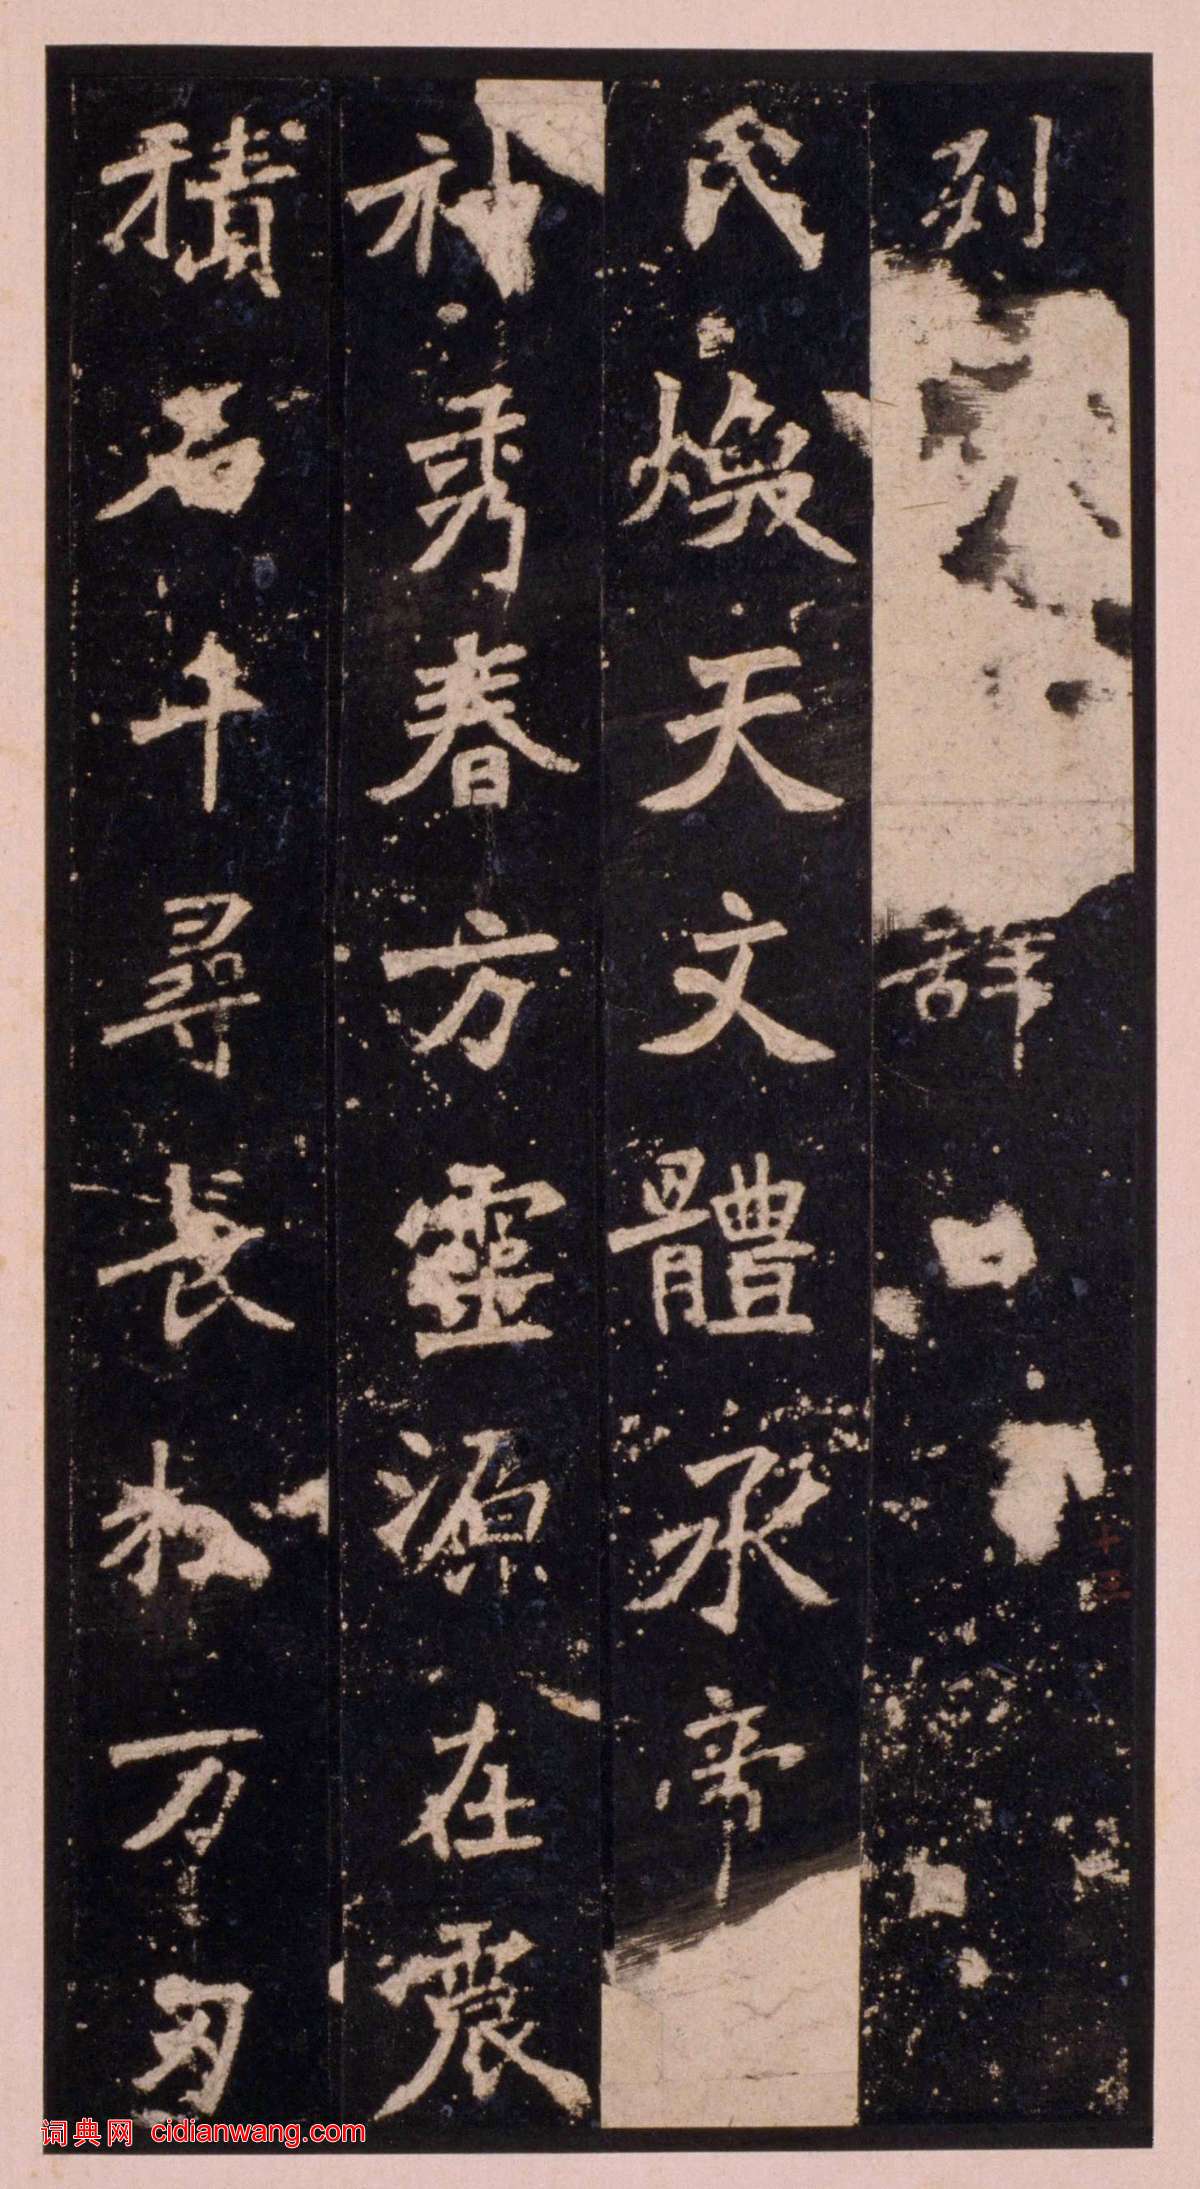 列
辞
氏煥天文體承帝
神秀春方靈源在震
積石千尋長松万刃
十三
词典网 cidianwang.com